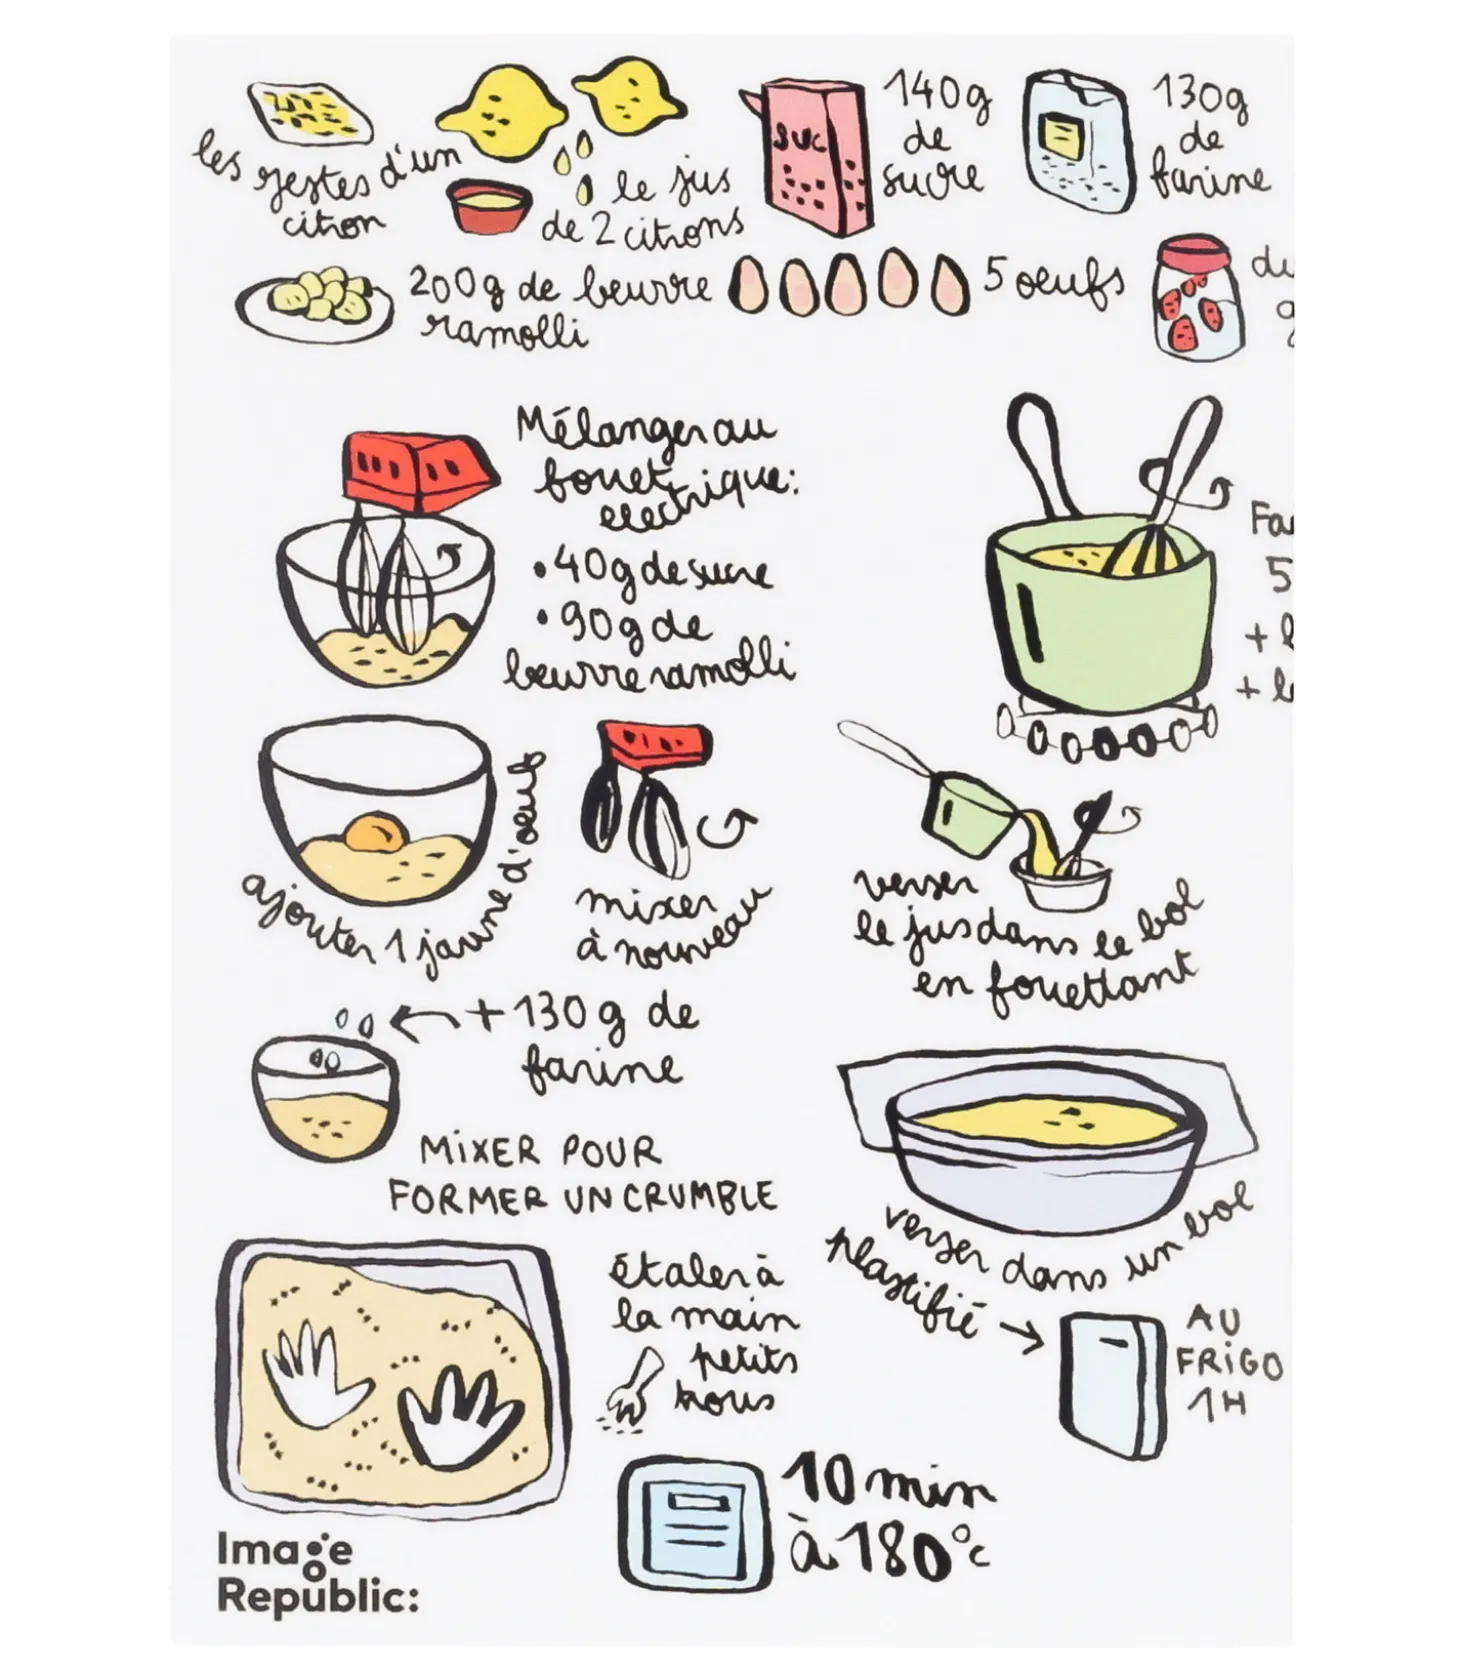 les zestes d'un
citron
le jus
de 2 citrons
SUC
140g
de
sucre
130g
de
farine
200g de beurre
ramolli
5 oeufs
du
g
Mélanger au
fouet
electrique:
• 40g de sucre
• 90g de
beurre ramolli
Fa
5
+ l
+ le
ajouter 1 jaune d'oeuf
mixer
à nouveau
verser
le jus dans le bol
en fouettant
+ 130g de
farine
MIXER POUR
FORMER UN CRUMBLE
verser dans un bol
plastifié
AU
FRIGO
1H
étaler à
la main
petits
trous
10 min
à 180°c
Image
Republic: